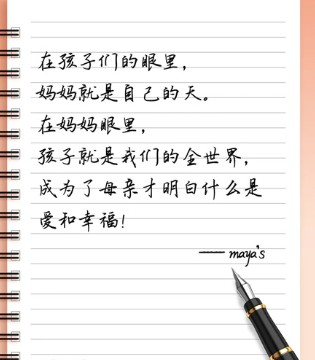 在孩子们的眼里，
妈妈就是自己的天。
在妈妈眼里，
孩子就是我们的全世界，
成为了母亲才明白什么是
爱和幸福！
—— maya's